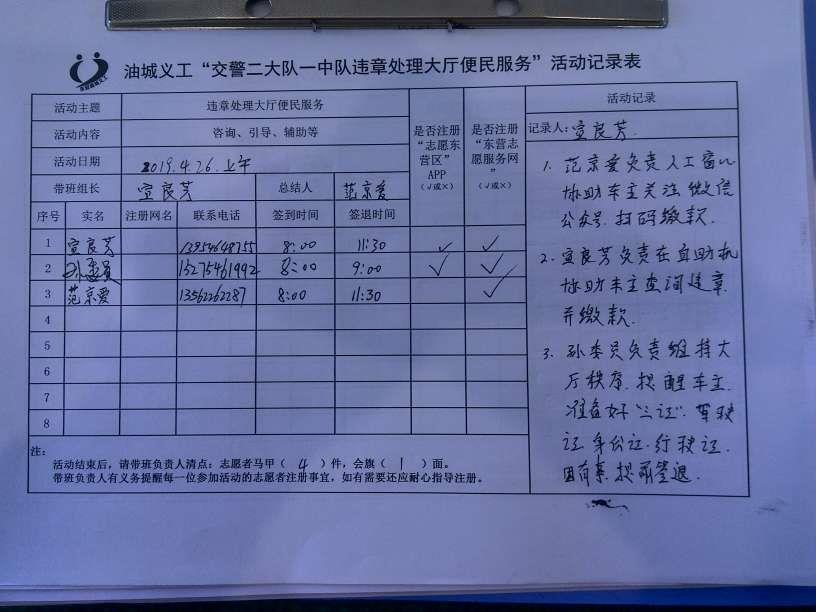 油城义工“交警二大队一中队违章处理大厅便民服务”活动记录表
活动主题 违章处理大厅便民服务
活动内容 咨询、引导、辅助等
活动日期 2019.4.26.上午
带班组长 宣良芳 总结人 范京爱
是否注册“志愿东营区”APP（√或×）
是否注册“东营志愿服务网”（√或×）
序号 实名 注册网名 联系电话 签到时间 签退时间
1 宣良芳 13954648755 8:00 11:30 √ √
2 孙委员 15275461992 8:00 9:00 √ √
3 范京爱 13562262287 8:00 11:30 √
4
5
6
7
8
注:
活动结束后，请带班负责人清点：志愿者马甲（ 4 ）件，会旗（ 1 ）面。
带班负责人有义务提醒每一位参加活动的志愿者注册事宜，如有需要还应耐心指导注册。
活动记录
记录人: 宣良芳.
1. 范京爱负责人工窗口
协助车主关注微信
公众号.扫码缴款.
2. 宣良芳负责在自助机
协助车主查询违章
并缴款.
3. 孙委员负责维持大
厅秩序.提醒车主.
准备好“三证”.驾驶
证.身份证.行驶证.
因有事.提前签退.